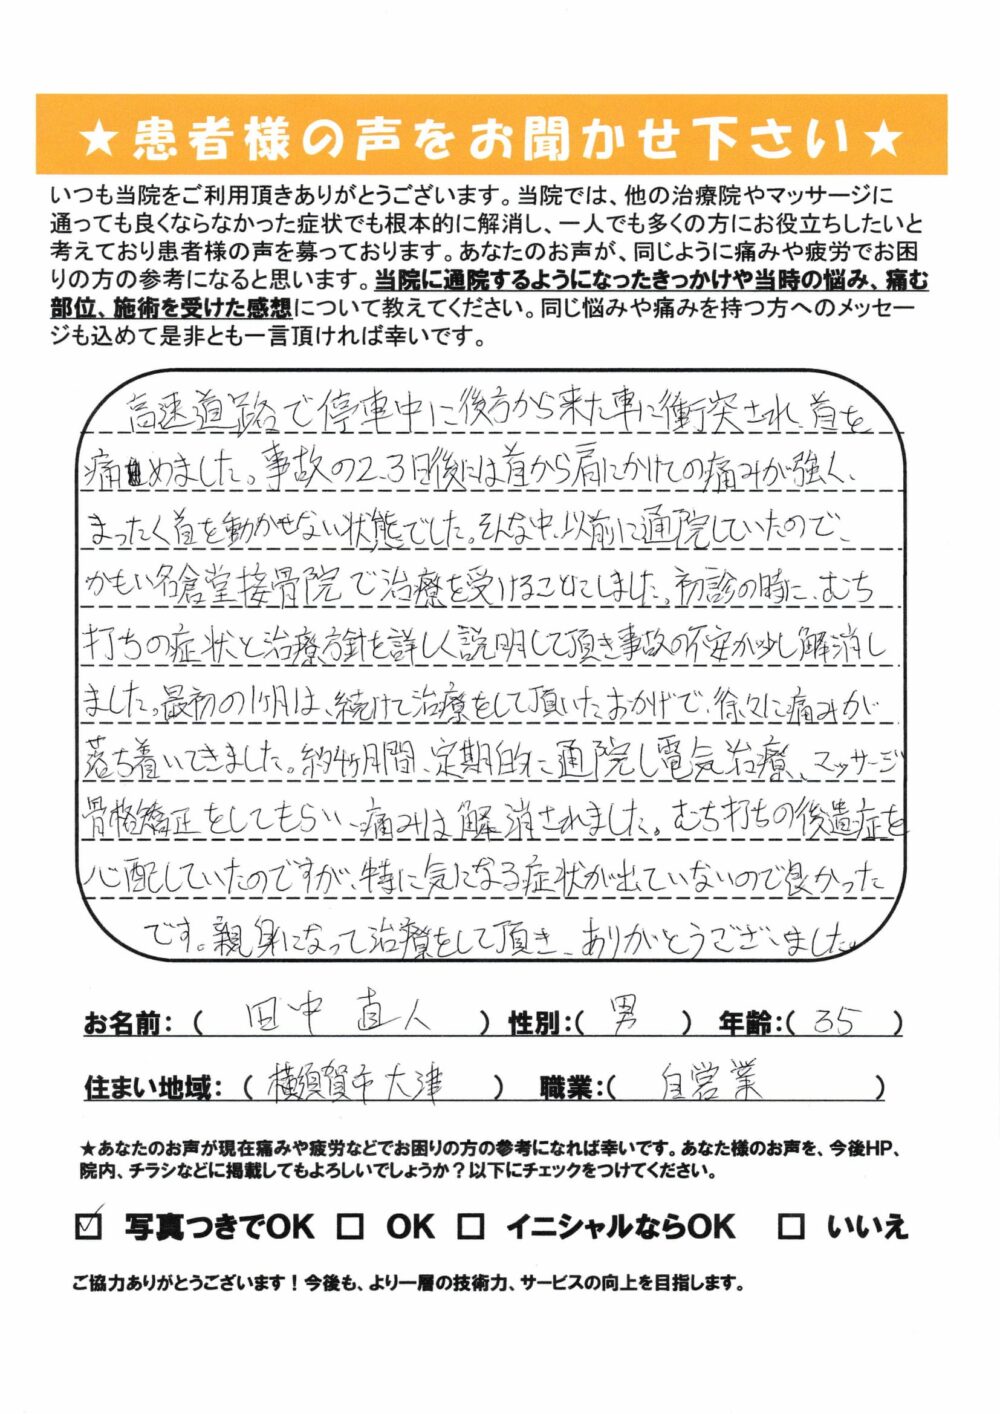 ★患者様の声をお聞かせ下さい★
いつも当院をご利用頂きありがとうございます。当院では、他の治療院やマッサージに
通っても良くならなかった症状でも根本的に解消し、一人でも多くの方にお役立ちしたいと
考えており患者様の声を募っております。あなたのお声が、同じように痛みや疲労でお困
りの方の参考になると思います。当院に通院するようになったきっかけや当時の悩み、痛む
部位、施術を受けた感想について教えてください。同じ悩みや痛みを持つ方へのメッセー
ジも込めて是非とも一言頂ければ幸いです。
高速道路で停車中に後方から来た車に衝突され、首を
痛めました。事故の2、3日後には首から肩にかけての痛みが強く、
まったく首を動かせない状態でした。そんな中、以前に通院していたので、
かもい名倉堂接骨院で治療を受けることにしました。初診の時に、むち
打ちの症状と治療方針を詳しく説明して頂き事故の不安が少し解消し
ました。最初の1ヶ月は、続けて治療をして頂いたおかげで、徐々に痛みが
落ち着いてきました。約4ヶ月間、定期的に通院し電気治療、マッサージ
骨格矯正をしてもらい、痛みは解消されました。むち打ちの後遺症を
心配していたのですが、特に気になる症状が出ていないので良かった
です。親身になって治療をして頂き、ありがとうございました。
お名前：（ 田中 直人 ） 性別：（ 男 ） 年齢：（ 35 ）
住まい地域：（ 横須賀市大津 ） 職業：（ 自営業 ）
★あなたのお声が現在痛みや疲労などでお困りの方の参考になれば幸いです。あなた様のお声を、今後HP、
院内、チラシなどに掲載してもよろしいでしょうか？以下にチェックをつけてください。
☑ 写真つきでOK □ OK □ イニシャルならOK □ いいえ
ご協力ありがとうございます！今後も、より一層の技術力、サービスの向上を目指します。